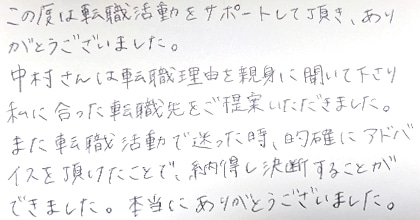 この度は転職活動をサポートして頂き、あり
がとうございました。
中村さんは転職理由を親身に聞いて下さり
私に合った転職先をご提案いただきました。
また転職活動で迷った時、的確にアドバ
イスを頂けたことで、納得し決断することが
できました。本当にありがとうございました。